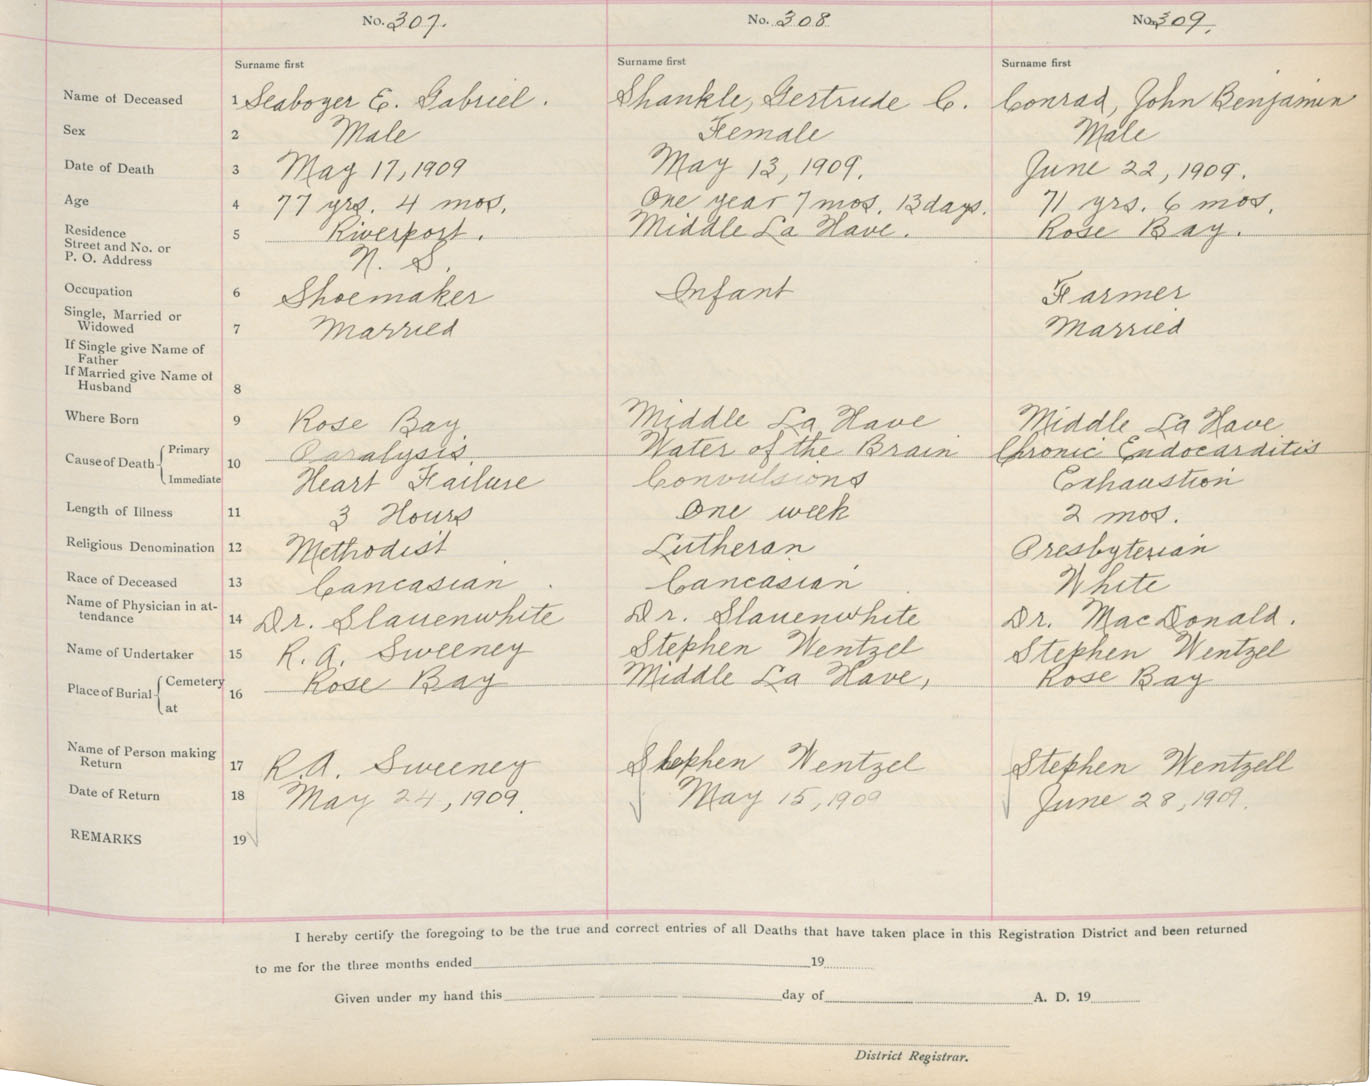 No. 307. No. 308 No. 309.
Surname first Surname first Surname first
Name of Deceased 1 Seaboyer E. Gabriel. Shankle, Gertrude C. Conrad, John Benjamin
Sex 2 Male Female Male
Date of Death 3 May 17, 1909 May 13, 1909. June 22, 1909.
Age 4 77 yrs. 4 mos. One year 7 mos. 13 days. 71 yrs. 6 mos.
Residence 5 Riverport. Middle La Have. Rose Bay.
Street and No. or
P. O. Address N. S.
Occupation 6 Shoemaker Infant Farmer
Single, Married or
Widowed 7 Married Married
If Single give Name of
Father
If Married give Name of
Husband 8
Where Born 9 Rose Bay Middle La Have Middle La Have
Cause of Death { Primary 10 Paralysis Water of the Brain Chronic Endocarditis
Immediate Heart Failure Convulsions Exhaustion
Length of Illness 11 3 Hours One week 2 mos.
Religious Denomination 12 Methodist Lutheran Presbyterian
Race of Deceased 13 Cancasian. Cancasian White
Name of Physician in at-
tendance 14 Dr. Slauenwhite Dr. Slauenwhite Dr. MacDonald.
Name of Undertaker 15 R. A. Sweeney Stephen Wentzel Stephen Wentzel
Place of Burial { Cemetery 16 Rose Bay Middle La Have, Rose Bay
at
Name of Person making
Return 17 R. A. Sweeney Stephen Wentzel Stephen Wentzell
Date of Return 18 May 24, 1909. May 15, 1909 June 28, 1909.
REMARKS 19
I hereby certify the foregoing to be the true and correct entries of all Deaths that have taken place in this Registration District and been returned
to me for the three months ended 19
Given under my hand this day of A. D. 19
District Registrar.